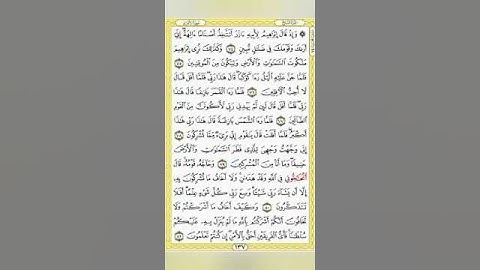 ۞ وَإِذْ قَالَ إِبْرَٰهِيمُ لِأَبِيهِ ءَازَرَ أَتَتَّخِذُ أَصْنَامًا ءَالِهَةً إِنِّىٓ
أَرَىٰكَ وَقَوْمَكَ فِى ضَلَٰلٍ مُّبِينٍ ٧٤ وَكَذَٰلِكَ نُرِىٓ إِبْرَٰهِيمَ
مَلَكُوتَ ٱلسَّمَٰوَٰتِ وَٱلْأَرْضِ وَلِيَكُونَ مِنَ ٱلْمُوقِنِينَ ٧٥
فَلَمَّا جَنَّ عَلَيْهِ ٱلَّيْلُ رَءَا كَوْكَبًا قَالَ هَٰذَا رَبِّى فَلَمَّآ أَفَلَ قَالَ
لَآ أُحِبُّ ٱلْءَافِلِينَ ٧٦ فَلَمَّا رَءَا ٱلْقَمَرَ بَازِغًا قَالَ هَٰذَا
رَبِّى فَلَمَّآ أَفَلَ قَالَ لَئِن لَّمْ يَهْدِنِى رَبِّى لَأَكُونَنَّ مِنَ ٱلْقَوْمِ
ٱلضَّآلِّينَ ٧٧ فَلَمَّا رَءَا ٱلشَّمْسَ بَازِغَةً قَالَ هَٰذَا رَبِّى هَٰذَآ
أَكْبَرُ فَلَمَّآ أَفَلَتْ قَالَ يَٰقَوْمِ إِنِّى بَرِىٓءٌ مِّمَّا تُشْرِكُونَ ٧٨
إِنِّى وَجَّهْتُ وَجْهِىَ لِلَّذِى فَطَرَ ٱلسَّمَٰوَٰتِ وَٱلْأَرْضَ
حَنِيفًا وَمَآ أَنَا۠ مِنَ ٱلْمُشْرِكِينَ ٧٩ وَحَآجَّهُۥ قَوْمُهُۥ قَالَ
أَتُحَٰٓجُّوٓنِّى فِى ٱللَّهِ وَقَدْ هَدَىٰنِ وَلَآ أَخَافُ مَا تُشْرِكُونَ بِهِۦٓ
إِلَّآ أَن يَشَآءَ رَبِّى شَيْـًٔا وَسِعَ رَبِّى كُلَّ شَىْءٍ عِلْمًا أَفَلَا
تَتَذَكَّرُونَ ٨٠ وَكَيْفَ أَخَافُ مَآ أَشْرَكْتُمْ وَلَا
تَخَافُونَ أَنَّكُمْ أَشْرَكْتُم بِٱللَّهِ مَا لَمْ يُنَزِّلْ بِهِۦ عَلَيْكُمْ
سُلْطَٰنًا فَأَىُّ ٱلْفَرِيقَيْنِ أَحَقُّ بِٱلْأَمْنِ إِن كُنتُمْ تَعْلَمُونَ ٨١
١٣٧